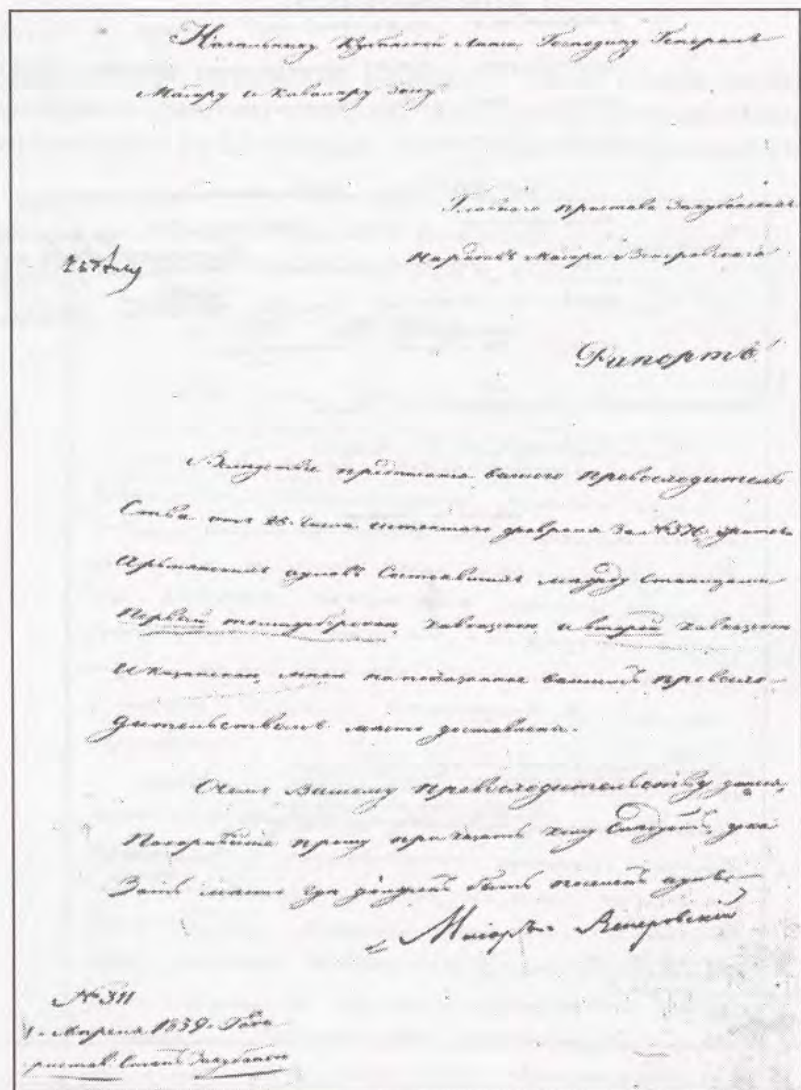 Начальнику Кубанской Линии Господину Генералъ
Маіору и Кавалеру Зассу
Главнаго пристава Закубанскихъ
Народовъ Маіора Венеровскаго
Рапортъ
Вследствіе предписанія вашего превосходитель
Ства отъ 28. числа истекшаго февраля За №376.
Армянскихъ ауловъ Составившихъ между Станицами
Первый темижбекскою, кавказкою, и второй кавказкою
И казанскою, мною на показанное вашимъ превосхо-
дительствомъ место доставлены.
О чемъ Вашему превосходительству донеся,
Покорнейше прошу приказать кому Следуетъ, ука
Зать место где долженъ быть поселенъ аулъ.
Маіоръ Венеровскій
№ 311
1839. Года
Закубански